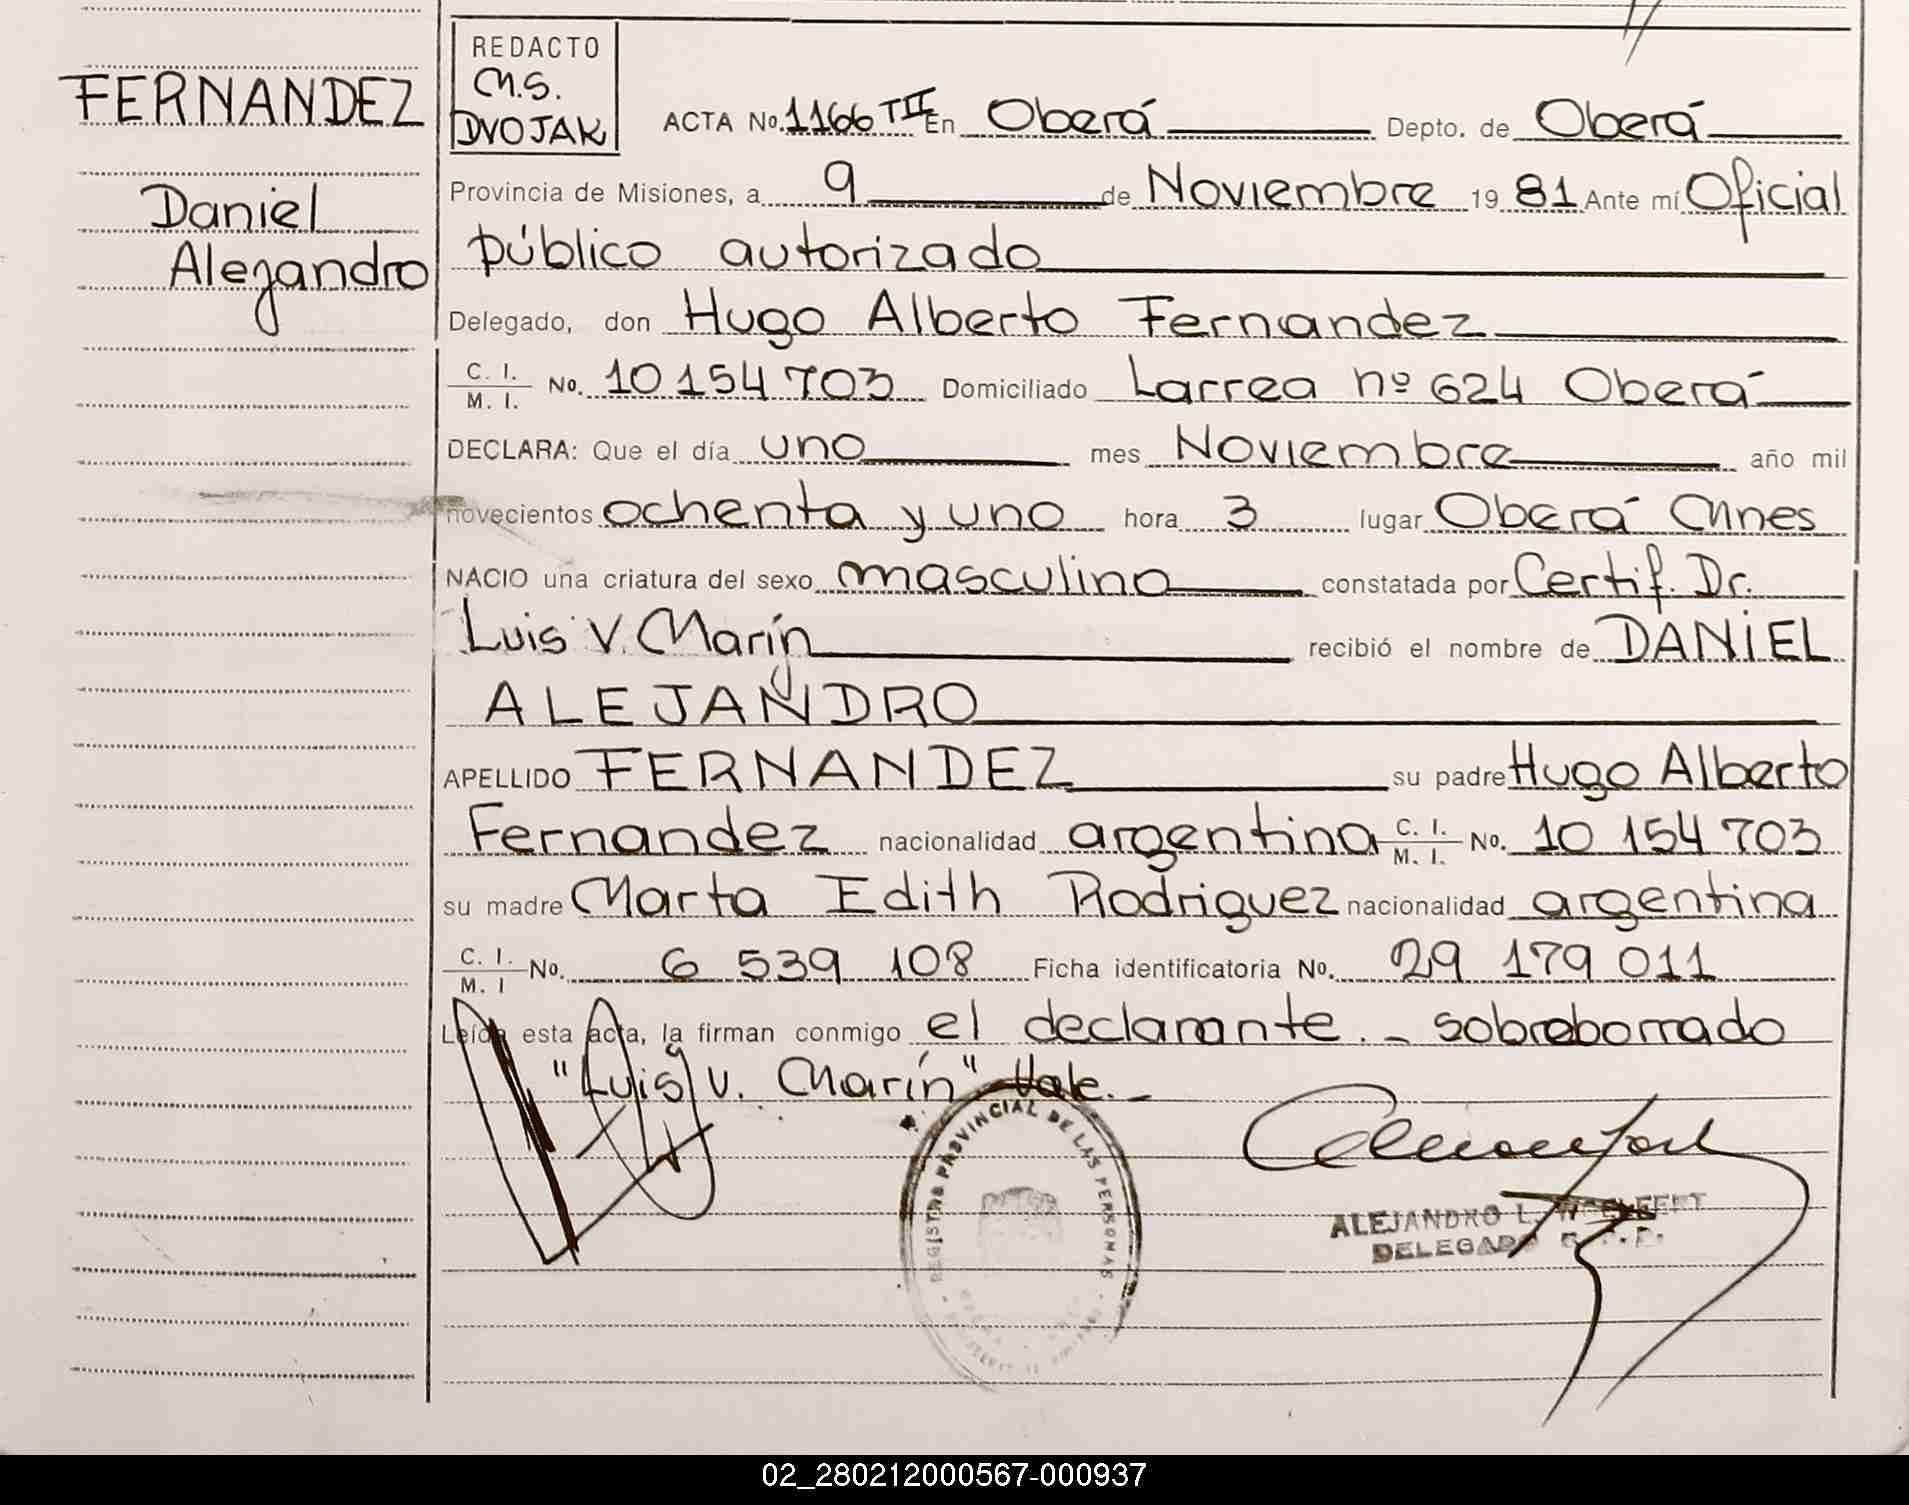 FERNANDEZ
Daniel
Alejandro
REDACTO
M.S.
DVOJAK
ACTA No. 1166 TII En Oberá Depto. de Oberá
Provincia de Misiones, a 9 de Noviembre 19 81 Ante mí Oficial
público autorizado
Delegado, don Hugo Alberto Fernandez
C. I. / M. I. No. 10 154 703 Domiciliado Larrea nº 624 Oberá
DECLARA: Que el día uno mes Noviembre año mil
novecientos ochenta y uno hora 3 lugar Oberá Mnes
NACIO una criatura del sexo masculino constatada por Certif. Dr.
Luis V. Marín recibió el nombre de DANIEL
ALEJANDRO
APELLIDO FERNANDEZ su padre Hugo Alberto
Fernandez nacionalidad argentina C. I. / M. I. No. 10 154 703
su madre Marta Edith Rodriguez nacionalidad argentina
C. I. / M. I No. 6 539 108 Ficha identificatoria No. 29 179 011
Leída esta acta, la firman conmigo el declarante._ sobreborrado
"Luis V. Marín" Vale._
REGISTRO PROVINCIAL DE LAS PERSONAS
ALEJANDRO L.
DELEGADO
02_280212000567-000937